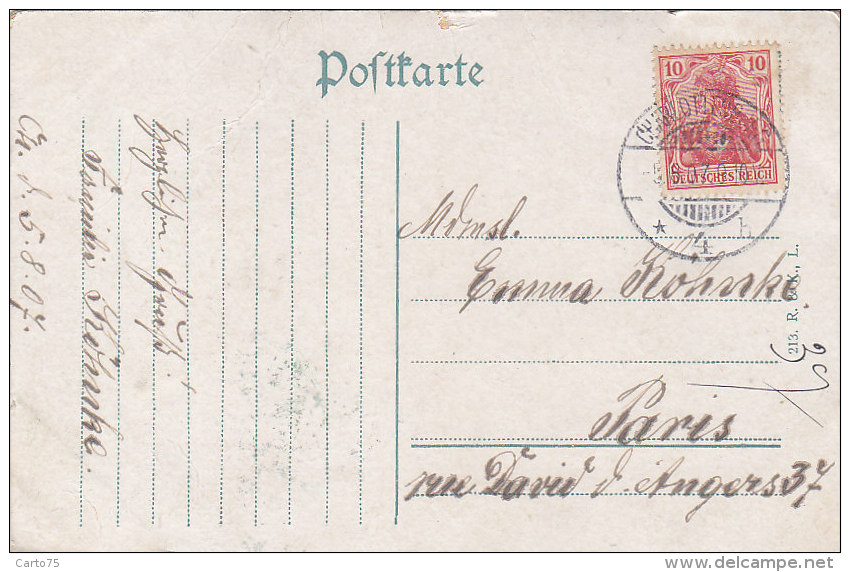 Postkarte
10 10
DEUTSCHES REICH
4 h
Ch. d. 5.8.07.
Herzlichen Gruß!
Familie Köhnke.
Mdmsl.
Emma Köhnke
Paris
rue David d. Angers 37
213. R. & K., L.
Carto75
delcampe.net